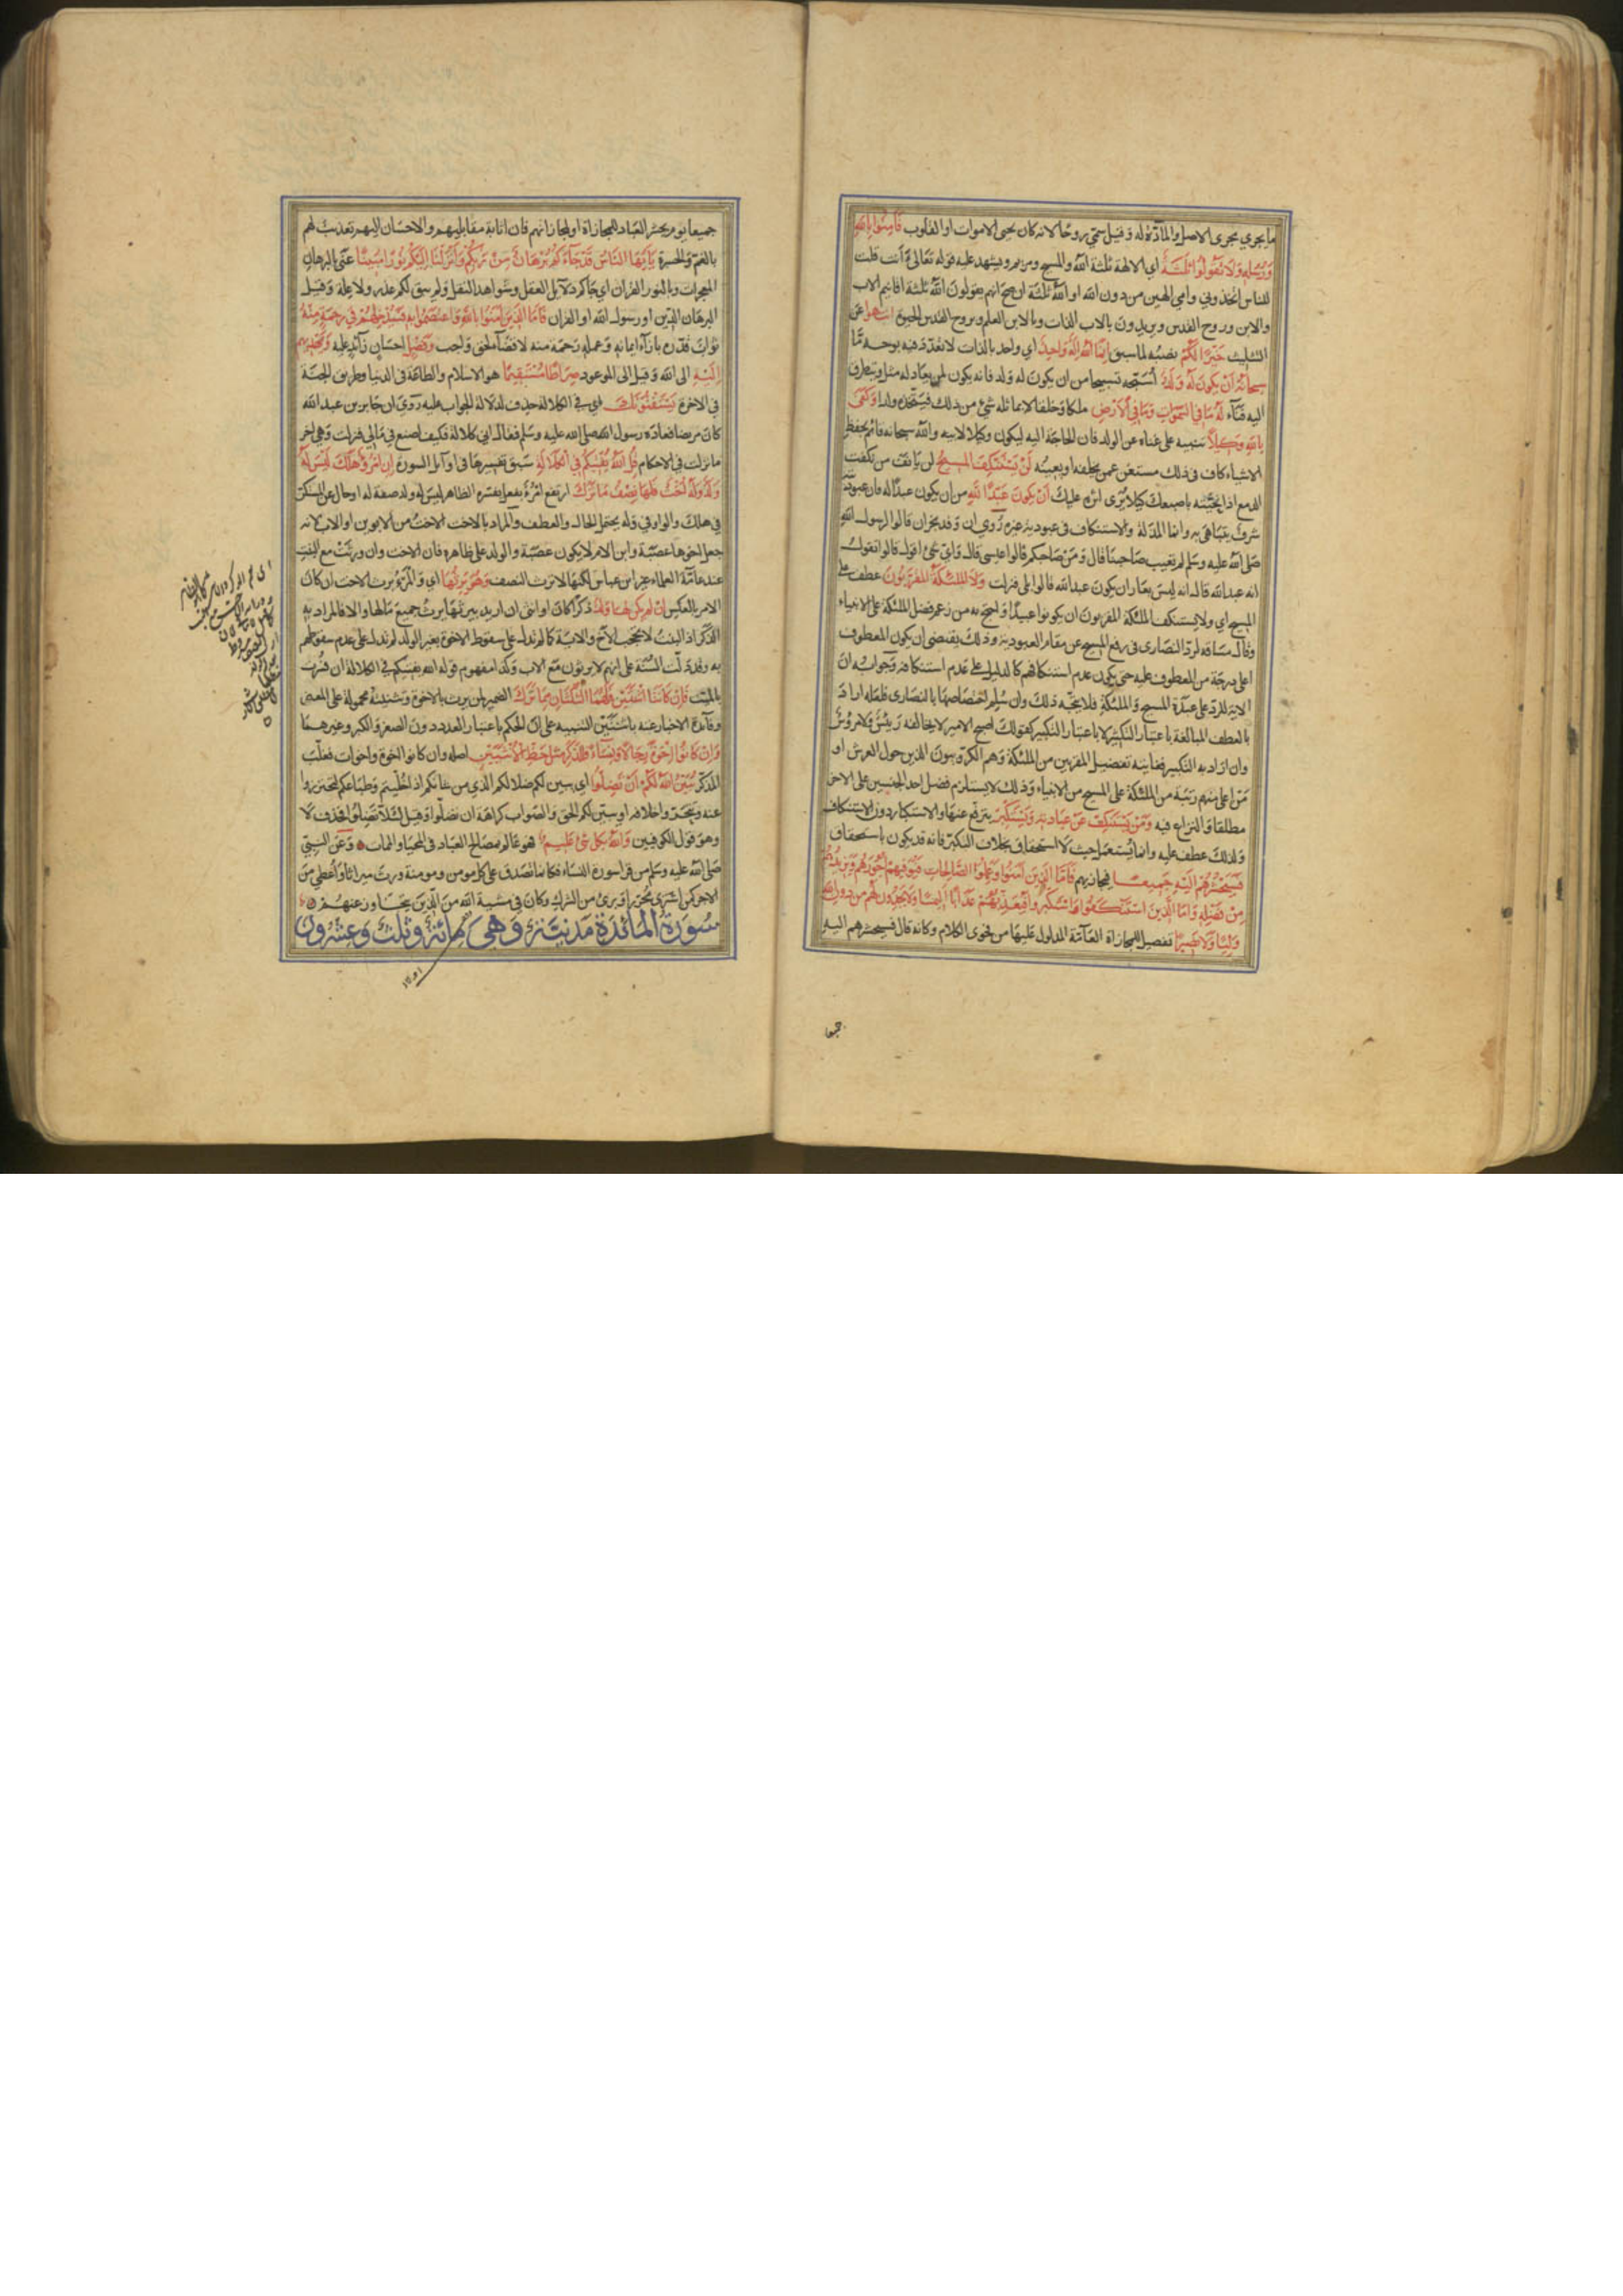 ما يجري مجرى الاصل والمادّة له وقيل سمّي روحا لانه كان يحيى الاموات او القلوب فَآمِنُوا بِاللهِ
وَرُسُلِهِ وَلَا تَقُولُوا ثَلٰثَةٌ اي الالهة ثلثة الله والمسيح ومريم ويشهد عليه قوله تعالى ءانت قلت
للناس اتخذوني وامي الهين من دون الله او الله ثلثة ان صح انهم يقولون الله ثلثة اقانيم الاب
والابن وروح القدس ويريدون بالاب الذات وبالابن العلم وبروح القدس الحيوة انتهوا عن
التثليث خَيْرًا لَكُمْ نصبه لما سبق اِنَّمَا اللهُ اِلٰهٌ وَاحِدٌ اي واحد بالذات لا تعدّد فيه بوجه مّا
سُبْحَانَهُ اَنْ يَكُونَ لَهُ وَلَدٌ اُسَبّحه تسبيحا من ان يكون له ولد فانه يكون لمن يعادله مثل ويتطرق
اليه فناء لَهُ مَا فِي السَّمٰوَاتِ وَمَا فِي الْاَرْضِ ملكا وخلقا لا يماثله شئ من ذلك فيتخذه ولدا وَكَفٰى
بِاللهِ وَكِيلًا تنبيه على غناه عن الولد فان الحاجة اليه ليكون وكيلا لابيه والله سبحانه قائم بحفظ
الاشياء كاف في ذلك مستغن عمن يخلفه او يعينه لَنْ يَسْتَنْكِفَ الْمَسِيحُ لن يانف من نكفت
الدمع اذا نحّيته باصبعك كيلا يُرى اثره عليك اَنْ يَكُونَ عَبْدًا لِلّٰهِ من ان يكون عبدًا له فان عبوديته
شرف يتباهى به وانما المذلة والاستنكاف في عبودية غيره رُوي ان وفد نجران قالوا لرسول الله
صلى الله عليه وسلم لم تعيب صاحبنا قال ومن صاحبكم قالوا عيسى قال واي شئ اقول قالوا تقول
انه عبد الله قال انه ليس بعار ان يكون عبد الله قالوا بلى فنزلت وَلَا الْمَلٰئِكَةُ الْمُقَرَّبُونَ عطف على
المسيح اي ولا يستنكف الملئكة المقربون ان يكونوا عبيدًا واحتج به من زعم فضل الملئكة على الانبياء
وقال مساقه لردّ النصارى في رفع المسيح عن مقام العبودية وذلك يقتضي ان يكون المعطوف
اعلى درجة من المعطوف عليه حتى يكون عدم استنكافهم كالدليل على عدم استنكافه وجوابه ان
الاية للرد على عبدة المسيح والملئكة فلا يتجه ذلك وان سلم اختصاصها بالنصارى فلعله اراد
بالعطف المبالغة باعتبار التكثير لا باعتبار التكبير كقولك اصبح الامير لا يخالفه رئيس ولا مرؤس
وان اراد به التكبير فغايته تفضيل المقربين من الملئكة وهم الكروبيون الذين حول العرش او
من اعلى منهم رتبة من الملئكة على المسيح من الانبياء وذلك لا يستلزم فضل احد الجنسين على الاخر
مطلقا والنزاع فيه وَمَنْ يَسْتَنْكِفْ عَنْ عِبَادَتِهِ وَيَسْتَكْبِرْ يترفع عنها والاستكبار دون الاستنكاف
ولذلك عطف عليه وانما يستعمل حيث لا استحقاق بخلاف التكبر فانه قد يكون باستحقاق
فَسَيَحْشُرُهُمْ اِلَيْهِ جَمِيعًا فيجازيهم فَاَمَّا الَّذِينَ اٰمَنُوا وَعَمِلُوا الصَّالِحَاتِ فَيُوَفِّيهِمْ اُجُورَهُمْ وَيَزِيدُهُمْ
مِنْ فَضْلِهِ وَاَمَّا الَّذِينَ اسْتَنْكَفُوا وَاسْتَكْبَرُوا فَيُعَذِّبُهُمْ عَذَابًا اَلِيمًا وَلَا يَجِدُونَ لَهُمْ مِنْ دُونِ اللهِ
وَلِيًّا وَلَا نَصِيرًا تفصيل للمجازاة العامّة المدلول عليها من فحوى الكلام وكانه قال فسيحشرهم اليه
جميعا
جميعا يوم يحشر العباد للمجازاة او لمجازاتهم فان اثابة مقابليهم والاحسان اليهم تعذيب لهم
بالغم والحسرة يَا اَيُّهَا النَّاسُ قَدْ جَاءَكُمْ بُرْهَانٌ مِنْ رَبِّكُمْ وَاَنْزَلْنَا اِلَيْكُمْ نُورًا مُبِينًا عنى بالبرهان
المعجزات وبالنور القران اي جاكم دلايل العقل وشواهد النقل ولم يبق لكم عذر ولا علة وقيل
البرهان الدين او رسول الله او القران فَاَمَّا الَّذِينَ اٰمَنُوا بِاللهِ وَاعْتَصَمُوا بِهِ فَسَيُدْخِلُهُمْ فِي رَحْمَةٍ مِنْهُ
ثواب قدّره بازآء ايمانه وعمله رحمة منه لا قضاء لحق واجب وَفَضْلٍ احسان زائد عليه وَيَهْدِيهِمْ
اِلَيْهِ الى الله وقيل الى الموعود صِرَاطًا مُسْتَقِيمًا هو الاسلام والطاعة في الدنيا وطريق الجنة
في الاخرة يَسْتَفْتُونَكَ اي في الكلالة حذف لدلالة الجواب عليه رُوي ان جابر بن عبد الله
كان مريضا فعاده رسول الله صلى الله عليه وسلم فقال اني كلالة فكيف اصنع في مالي فنزلت وهي اخر
ما نزلت في الاحكام قُلِ اللهُ يُفْتِيكُمْ فِي الْكَلَالَةِ سبق تفسيرها في اوايل السورة اِنِ امْرُؤٌ هَلَكَ لَيْسَ لَهُ
وَلَدٌ وَلَهُ اُخْتٌ فَلَهَا نِصْفُ مَا تَرَكَ ارتفع امرؤ بفعل يفسره الظاهر ليس له ولد صفة له او حال عن المستكن
في هلك والواو في وله يحتمل الحال والعطف والمراد بالاخت الاخت من الابوين او الاب لانه
جعل اخوها عصبة وابن الام لا يكون عصبة والولد على ظاهره فان الاخت وان ورثت مع البنت
عند عامة العلماء غير ابن عباس لكنها لا ترث النصف وَهُوَ يَرِثُهَا اي والمرء يرث الاخت ان كان
الامر بالعكس اِنْ لَمْ يَكُنْ لَهَا وَلَدٌ ذكرًا كان او انثى ان اريد بيرثها يرث جميع مالها والا فالمراد به
الذكر اذ البنت لا تحجب الاخ والاية كما لم تدل على سقوط الاخوة بغير الولد لم تدل على عدم سقوطهم
به وقد دلّت السنة على انهم لا يرثون مع الاب وكذا مفهوم قوله قل الله يفتيكم في الكلالة ان فسّرت
بالميت فَاِنْ كَانَتَا اثْنَتَيْنِ فَلَهُمَا الثُّلُثَانِ مِمَّا تَرَكَ الضمير لمن يرث بالاخوة وتثنيته محمولة على المعنى
وفائدة الاخبار عنه باثنتين التنبيه على ان الحكم باعتبار العدد دون الصغر والكبر وغيرهما
وَاِنْ كَانُوا اِخْوَةً رِجَالًا وَنِسَاءً فَلِلذَّكَرِ مِثْلُ حَظِّ الْاُنْثَيَيْنِ اصله وان كانوا اخوة واخوات فغلّب
المذكر يُبَيِّنُ اللهُ لَكُمْ اَنْ تَضِلُّوا اي يبين لكم ضلالكم الذي من شانكم اذا خُلّيتم وطباعكم لتحترزوا
عنه وتتحروا خلافه او يبين لكم الحق والصواب كراهة ان تضلوا وقيل لئلا تضلوا فحذف لا
وهو قول الكوفيين وَاللهُ بِكُلِّ شَيْءٍ عَلِيمٌ فهو عالم بمصالح العباد في المحيا والممات وعن النبي
صلى الله عليه وسلم من قرا سورة النساء فكانما تصدق على كل مومن ومومنة ورث ميراثا وأُعطي من
الاجر كمن اشترى محرّرا وبرئ من الشرك وكان في مشية الله من الذين يتجاوز عنهم
سورة المائدة مدنية وهى مائة وثلث وعشرون